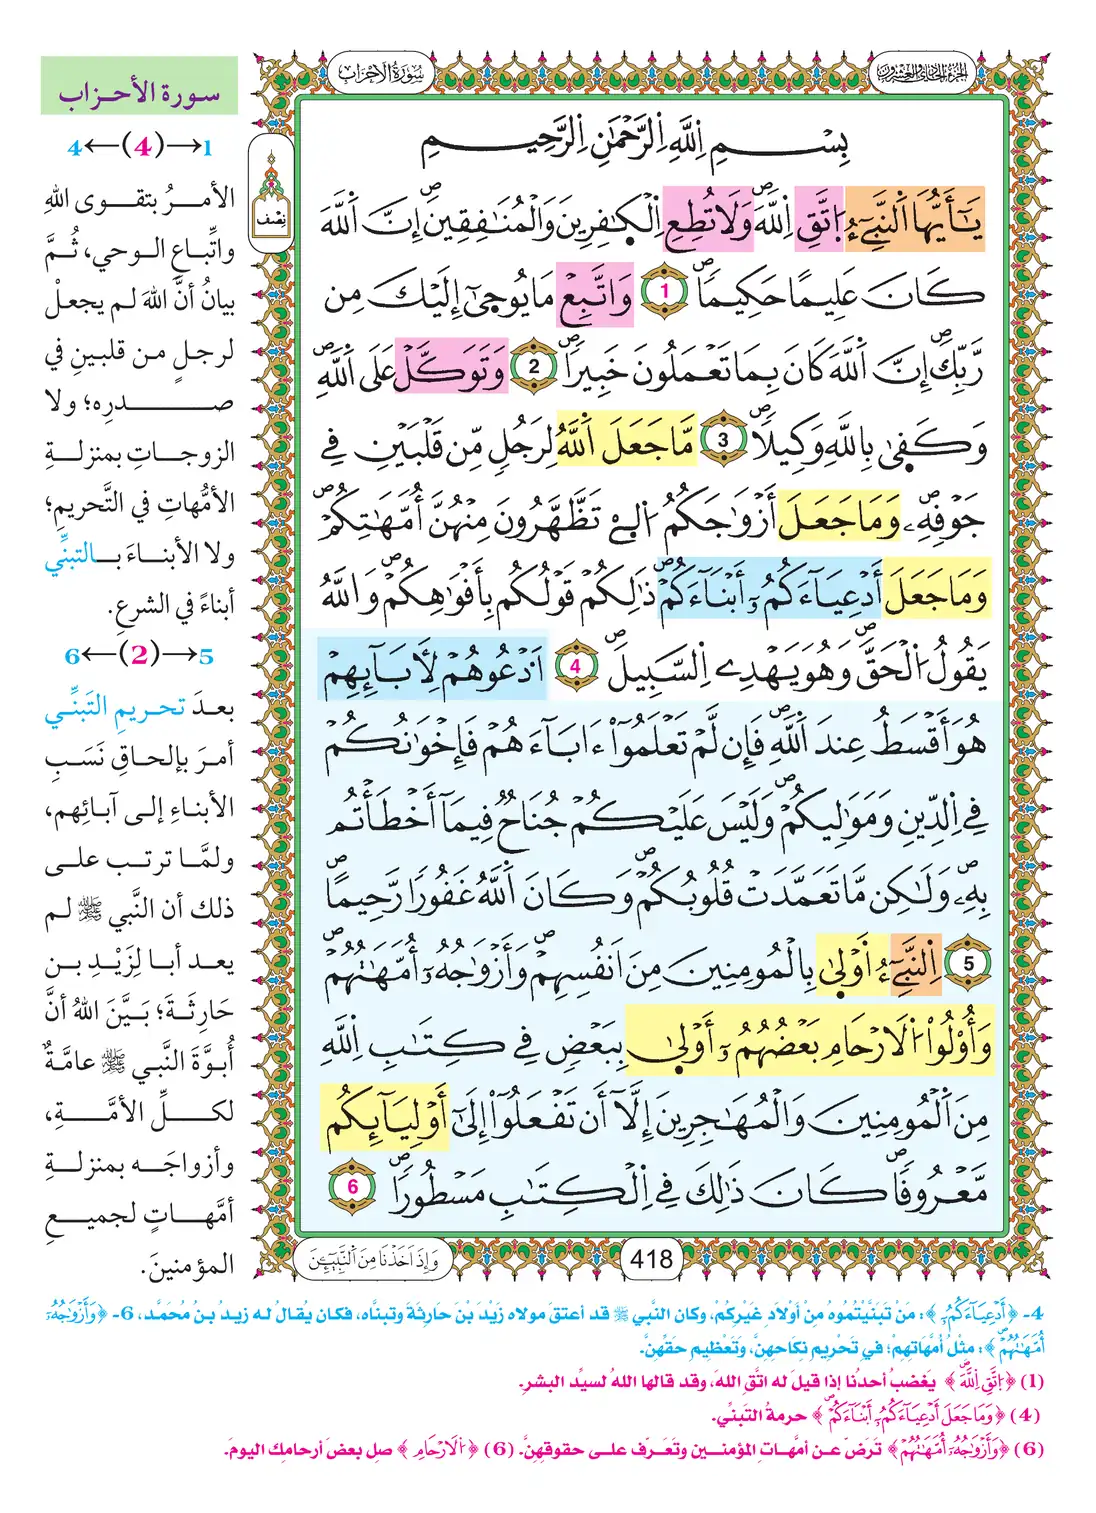 الجزء الحادي والعشرون
سورة الأحزاب
نصف
بِسْمِ اِ۬للَّهِ اِ۬لرَّحْمَٰنِ اِ۬لرَّحِيمِ
يَٰٓأَيُّهَا اَ۬لنَّبِےٓءُ اُ۪تَّقِ اِ۬للَّهَۖ وَلَا تُطِعِ اِ۬لْكٰ۪فِرِينَ وَالْمُنَٰفِقِينَۖ إِنَّ اَ۬للَّهَ
كَانَ عَلِيماً حَكِيماٗۖ 1 وَاتَّبِعْ مَا يُوح۪يٰٓ إِلَيْكَ مِن
رَّبِّكَۖ إِنَّ اَ۬للَّهَ كَانَ بِمَا تَعْمَلُونَ خَبِيراٗۖ 2 وَتَوَكَّلْ عَلَى اَ۬للَّهِۖ
وَكَف۪يٰ بِاللَّهِ وَكِيلاٗۖ 3 مَّا جَعَلَ اَ۬للَّهُ لِرَجُلٖ مِّن قَلْبَيْنِ فِے
جَوْفِهِۦۖ وَمَا جَعَلَ أَزْوَٰجَكُمُ اُ۬لَّٰٓےْ تَظَّهَّرُونَ مِنْهُنَّ أُمَّهَٰتِكُمْۖ
وَمَا جَعَلَ أَدْعِيَآءَكُمُۥٓ أَبْنَآءَكُمْۖ ذَٰلِكُمْ قَوْلُكُم بِأَفْوَٰهِكُمْۖ وَاللَّهُ
يَقُولُ اُ۬لْحَقَّۖ وَهُوَ يَهْدِے اِ۬لسَّبِيلَۖ 4 اَ۟دْعُوهُمْ لِأٓبَآئِهِمْ
هُوَ أَقْسَطُ عِندَ اَ۬للَّهِۖ فَإِن لَّمْ تَعْلَمُوٓاْ ءَابَآءَهُمْ فَإِخْوَٰنُكُمْ
فِے اِ۬لدِّينِ وَمَوَٰلِيكُمْۖ وَلَيْسَ عَلَيْكُمْ جُنَاحٞ فِيمَآ أَخْطَأْتُم
بِهِۦۖ وَلَٰكِن مَّا تَعَمَّدَتْ قُلُوبُكُمْۖ وَكَانَ اَ۬للَّهُ غَفُوراٗ رَّحِيماًۖ
5 اِ۬لنَّبِےٓءُ أَوْل۪يٰ بِالْمُومِنِينَ مِنَ اَنفُسِهِمْۖ وَأَزْوَٰجُهُۥٓ أُمَّهَٰتُهُمْۖ
وَأُوْلُواْ اُ۬لَارْحَامِ بَعْضُهُمُۥٓ أَوْل۪يٰ بِبَعْضٖ فِے كِتَٰبِ اِ۬للَّهِ
مِنَ اَ۬لْمُومِنِينَ وَالْمُهَٰجِرِينَ إِلَّآ أَن تَفْعَلُوٓاْ إِلَىٰٓ أَوْلِيَآئِكُم
مَّعْرُوفاٗۖ كَانَ ذَٰلِكَ فِے اِ۬لْكِتَٰبِ مَسْطُوراٗۖ 6
418
وَإِذَ اَخَذْنَا مِنَ اَ۬لنَّبِيٓـِٕۧنَ
سورة الأحزاب
1→(4)←4
الأمرُ بتقوى اللهِ
واتِّباعِ الوحي، ثُمَّ
بيانُ أنَّ اللهَ لم يجعلْ
لرجلٍ من قلبينِ في
صدرِه؛ ولا
الزوجاتِ بمنزلةِ
الأمَّهاتِ في التَّحريمِ؛
ولا الأبناءَ بالتبنِّي
أبناءً في الشرعِ.
5→(2)←6
بعدَ تحريمِ التَبنِّي
أمرَ بإلحاقِ نَسَبِ
الأبناءِ إلى آبائِهم،
ولمَّا ترتب على
ذلك أن النَّبي ﷺ لم
يعد أبا لِزَيْدِ بن
حَارِثَةَ؛ بَيَّنَ اللهُ أنَّ
أُبوَّةَ النَّبي ﷺ عامَّةٌ
لكلِّ الأمَّةِ،
وأزواجَه بمنزلةِ
أمَّهاتٍ لجميعِ
المؤمنينَ.
4- ﴿أَدْعِيَآءَكُمُۥٓ﴾: مَنْ تَبَنَّيْتُمُوهُ مِنْ أَوْلَادِ غَيْرِكُمْ، وكان النَّبي ﷺ قد أعتقَ مولاه زَيْدَ بْنَ حَارِثَةَ وتبنَّاه، فكان يُقالُ له زيدُ بنُ مُحَمَّد، 6- ﴿وَأَزْوَٰجُهُۥٓ
أُمَّهَٰتُهُمْۖ﴾: مثْلُ أُمَّهَاتِهِمْ؛ في تَحْرِيمِ نِكَاحِهِنَّ، وتَعْظِيمِ حقِّهِنَّ.
(1) ﴿اُ۪تَّقِ اِ۬للَّهَۖ﴾ يغضبُ أحدُنا إذا قيلَ له اتَّقِ اللهَ، وقد قالها اللهُ لسيِّد البشرِ.
(4) ﴿وَمَا جَعَلَ أَدْعِيَآءَكُمُۥٓ أَبْنَآءَكُمْۖ﴾ حرمةُ التَبنِّي.
(6) ﴿وَأَزْوَٰجُهُۥٓ أُمَّهَٰتُهُمْۖ﴾ تَرَضّ عن أمَّهاتِ المؤمنين وتَعَرَّف على حقوقهنَّ. (6) ﴿اُ۬لَارْحَامِ﴾ صل بعضَ أرحامِك اليومَ.